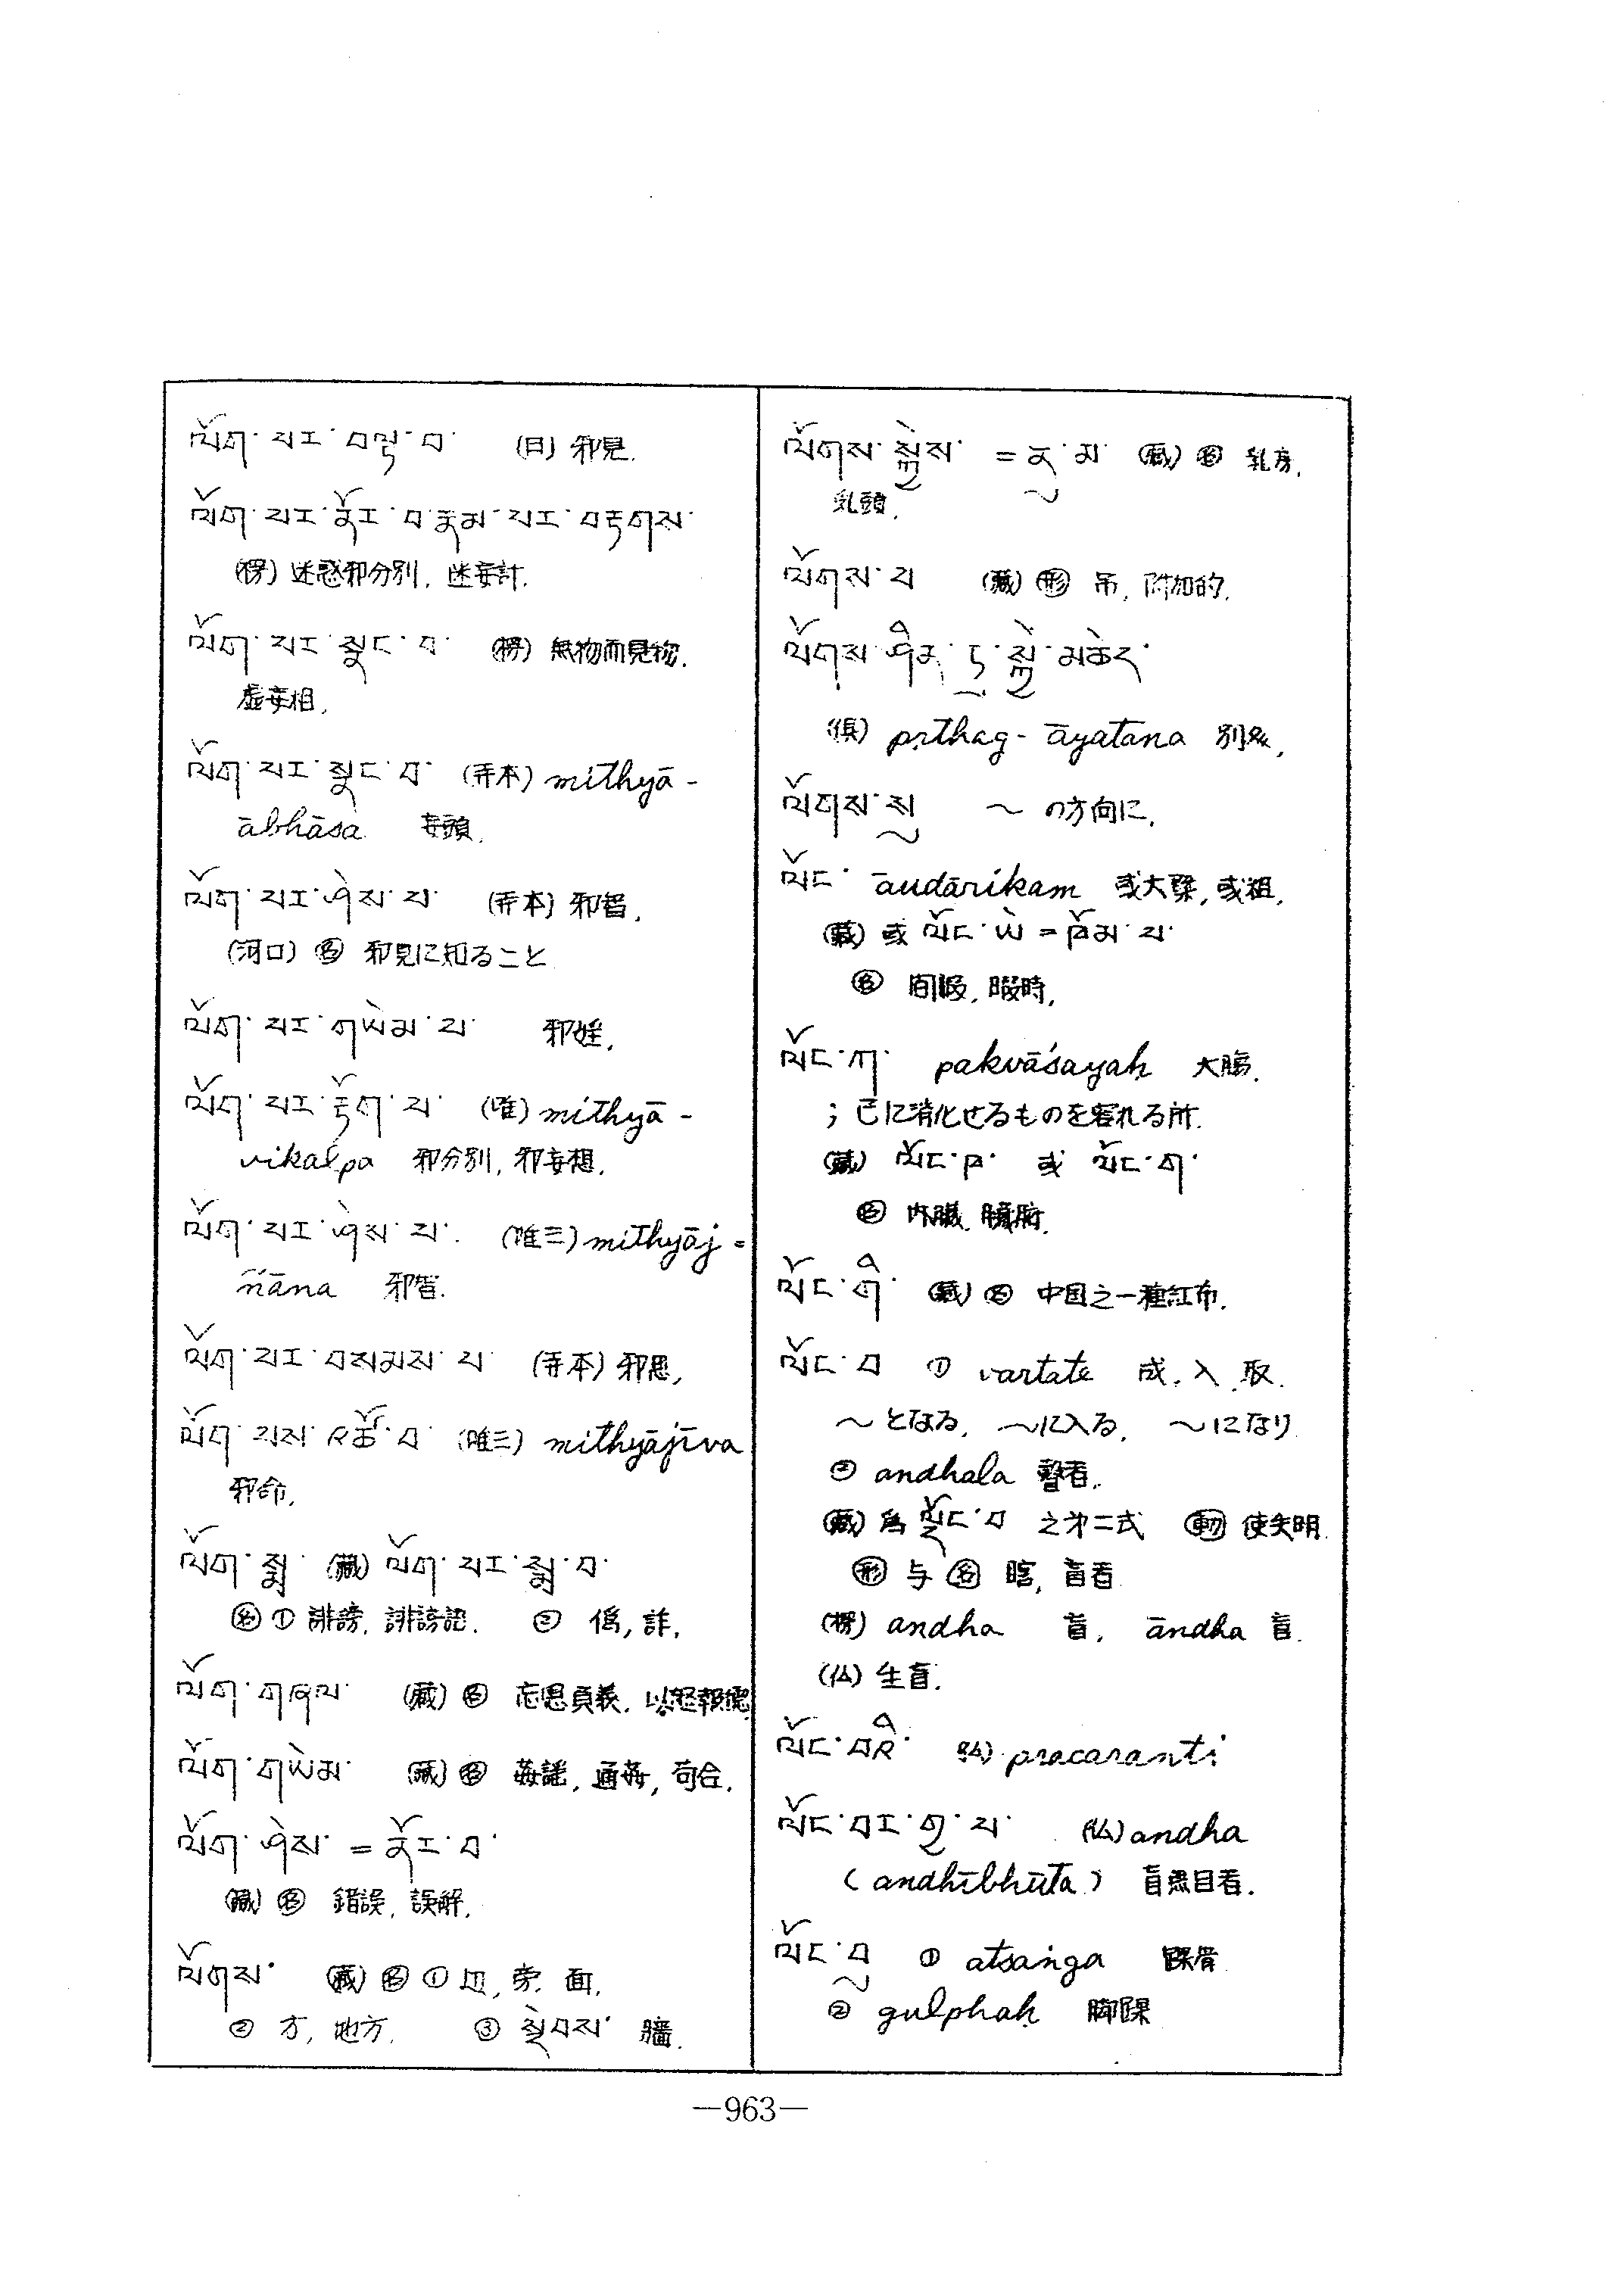 ལོག་པར་བལྟ་བ་ (日) 邪見.
ལོག་པར་ནོར་བ་རྣམ་པར་བརྟགས་
(楞) 迷惑邪分別, 迷妄計.
ལོག་པར་སྣང་བ་ (楞) 無物而見物.
虚妄相,
ལོག་པར་སྣང་བ་ (寺本) mithyā-
ābhāsa 妄顕.
ལོག་པར་ཤེས་པ་ (寺本) 邪智,
(河口) 名 邪見に知ること
ལོག་པར་གཡེམ་པ་ 邪婬,
ལོག་པར་རྟོག་པ་ (唯) mithyā-
vikalpa 邪分別, 邪妄想,
ལོག་པར་ཤེས་པ་. (唯三) mithyāj=
ñāna 邪智.
ལོག་པར་བསམས་པ་ (寺本) 邪思,
ལོག་པས་འཚོ་བ་ (唯三) mithyājīva
邪命,
ལོག་སྨྲ་ (藏) ལོག་པར་སྨྲ་བ་
名 ① 誹謗, 誹謗語. ② 偽, 詐,
ལོག་གཞལ་ (藏) 名 忘恩負義, 以怨報德
ལོག་གཡེམ་ (藏) 名 姦謠, 通姦, 苟合,
ལོག་ཤེས་ = ནོར་བ་
(藏) 名 錯誤, 誤解,
ལོགས་ (藏) 名 ① 辺, 旁, 面,
② 方, 地方, ③ 牆.
ལོགས་སྐྱེས་ = ནུ་མ་ (藏) 名 乳房,
乳頭,
ལོགས་པ (藏) 形 吊, 附加的,
ལོགས་ཤིན་ཏུ་སྐྱེ་མཆེད་
(俱) pṛthag-āyatana 別処,
ལོགས་སུ ～の方向に,
ལོང་ audārikam 或大麁, 或粗,
(藏) 或 ལོང་ཡེ་ = ཁོམ་པ་
名 間暇, 暇時,
ལོང་ཀ་ pakvāśayaḥ 大腸.
; 已に消化せるものを容れる所.
(藏) ལོང་ཁ་ 或 ལོང་ག་
名 内臓, 臓腑,
ལོང་གི་ (藏) 名 中国之一種紅布,
ལོང་བ ① vartate 成, 入, 取.
～となる, ～に入る, ～になり
② andhala 瞽者,
(藏) 為 ལྡོང་བ 之第二式 動 使失明
形 与 名 瞎, 盲者
(楞) andha 盲, āndha 盲.
(仏) 生盲.
ལོང་བའི་ (仏) pracaranti
ལོང་བར་གྱུ་པ་ (仏) andha
(andhībhūta) 盲無目者.
ལོང་བུ ① atsaṅga 踝骨
② gulphaḥ 脚踝
—963—